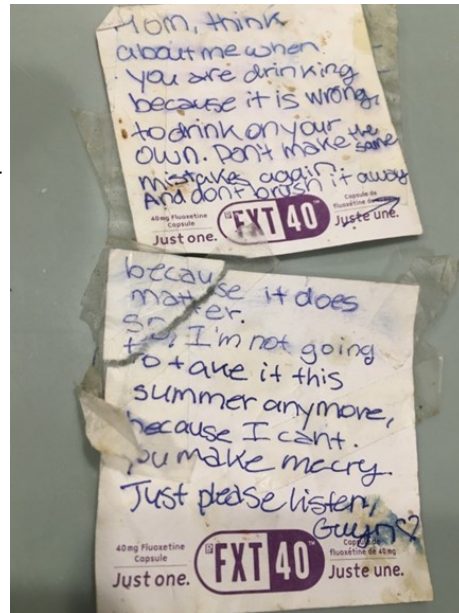 Mom, think
about me when
you are drinking
because it is wrong,
to drink on your
own. Don't make the same
mistakes again.
And dont brush it away
40mg Fluoxetine
Capsule
Just one.
FXT 40™
Capsule de
fluoxétine de
Juste une.
because it does
matter.
I'm not going
to take it this
summer anymore,
because I cant.
you make me cry.
Just please listen,
Guyn♡
40mg Fluoxetine
Capsule
Just one.
FXT 40™
fluoxétine de 40mg
Juste une.